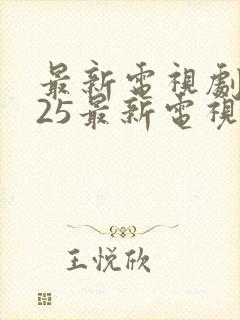 最新電視劇
25最新電視
王悦欣